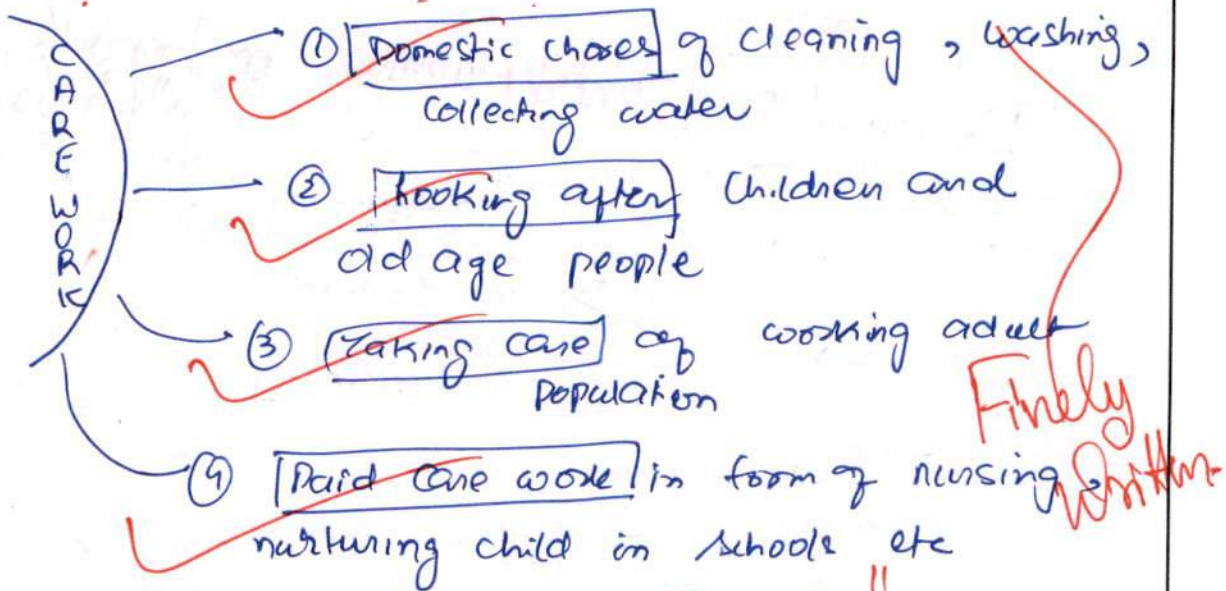 CARE WORK
① Domestic chores of cleaning, washing,
collecting water
② Looking after children and
old age people
③ Taking care of working adult
population
Finely
④ Paid care work in form of nursing,
Written
nurturing child in schools etc